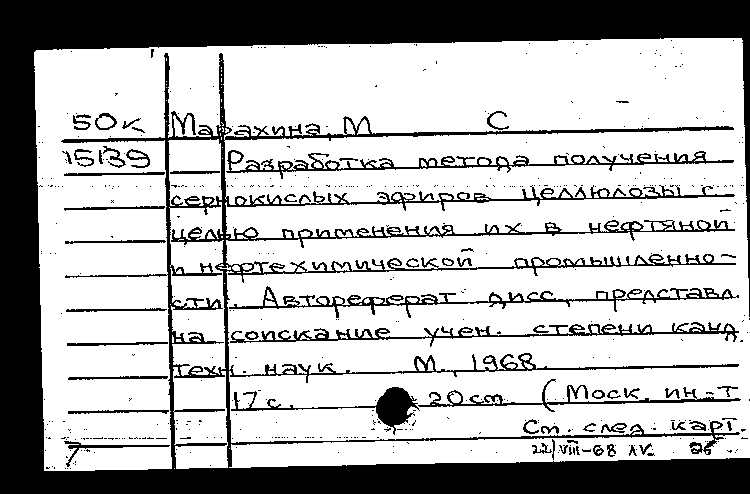 50к Марахина, М С
15139 Разработка метода получения
сернокислых эфиров целлюлозы с
целью применения их в нефтяной
и нефтехимической промышленно-
сти. Автореферат дисс., представл.
на соискание учен. степени канд.
техн. наук. М., 1968.
17 с. 20 см (Моск. ин-т
См. след. карт.
7 22/VIII-68